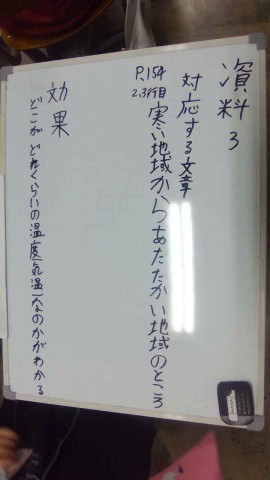 資料3
対応する文章
P.154
2,3行目
寒い地域からあたたかい地域のところ
効果
どこがどれくらいの温度(気温)なのかがわかる